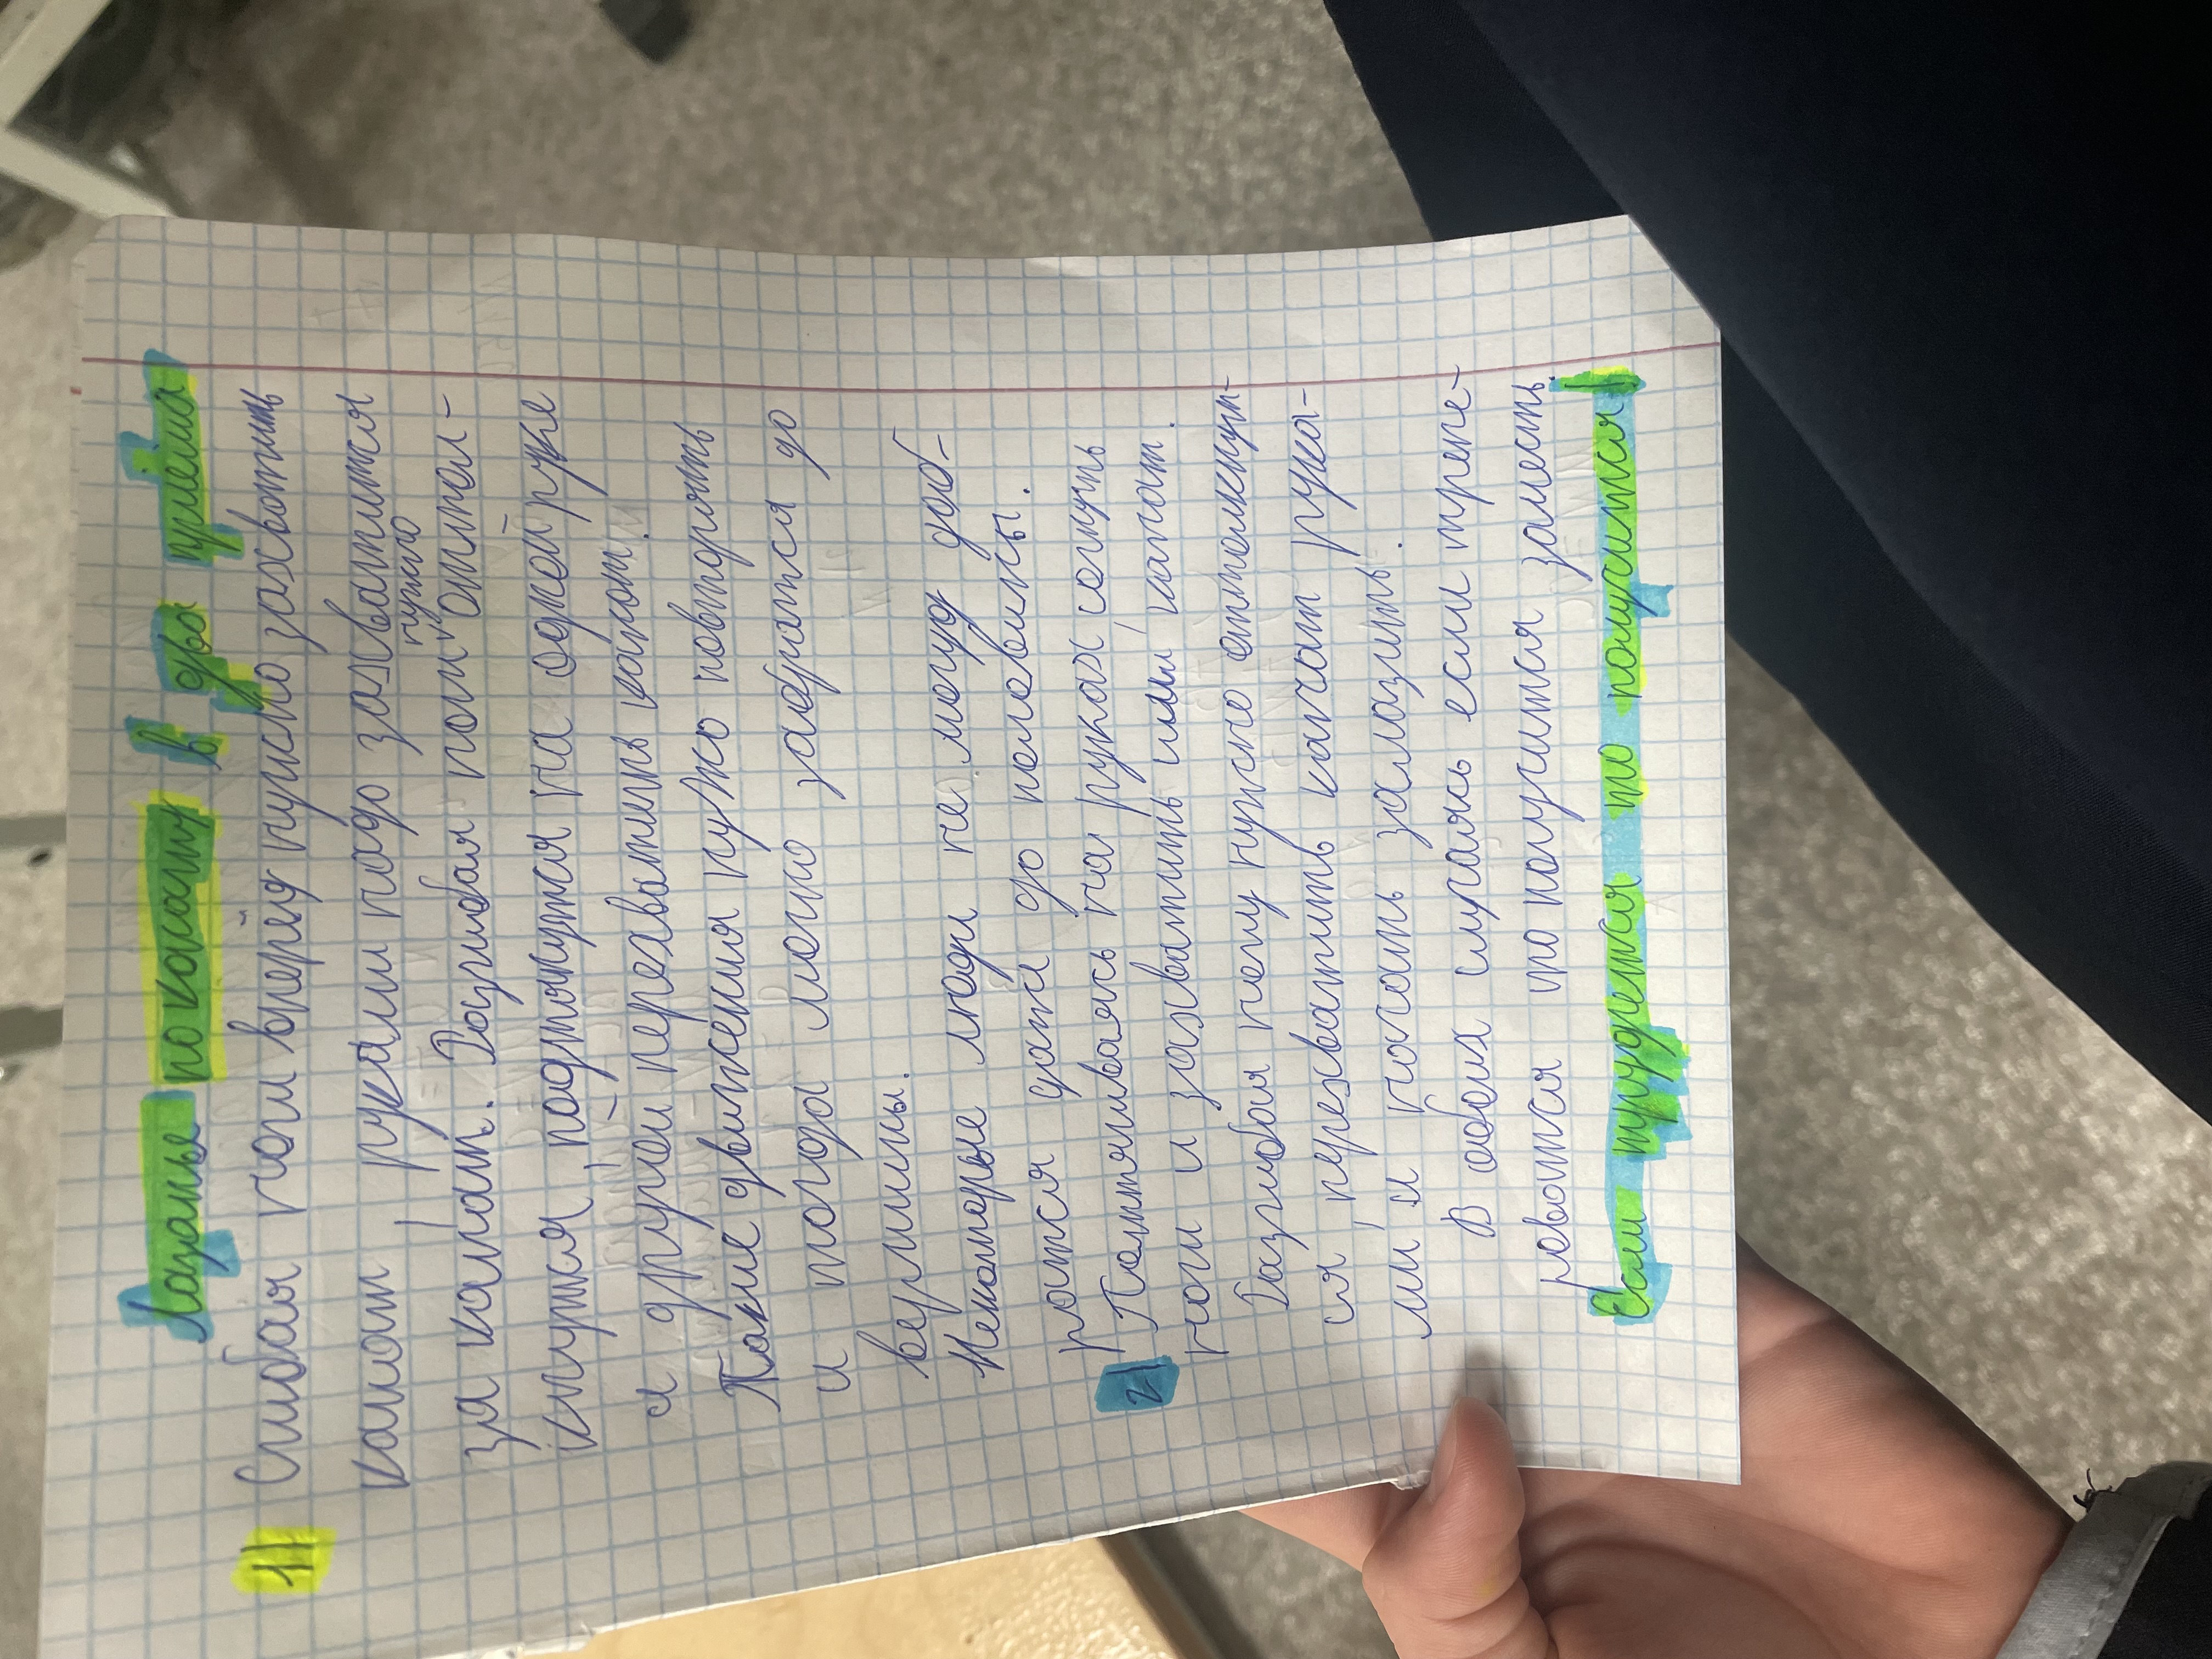 Лазанье по канату в два приёма
1) Сгибая ноги вперёд нужно захватить
канат руками надо захватится
нужно
за канат. Разгибая ноги оттол-
кнутся, подтянутся на одной руке
и другой перехватить канат.
Такие движения нужно повторять
и тогда можно забратся до
вершины.
Некоторые люди не могут доб-
ратся даже до половины.
2) Потягиваясь на руках согнуть
ноги и захватить ими канат.
Разгибая нему нужно оттолкнут-
ся, перехватить канат рука-
ми и начать залазить.
В обоих случаясь если трене-
роватся то получится залесть.
Если трудется то получится!